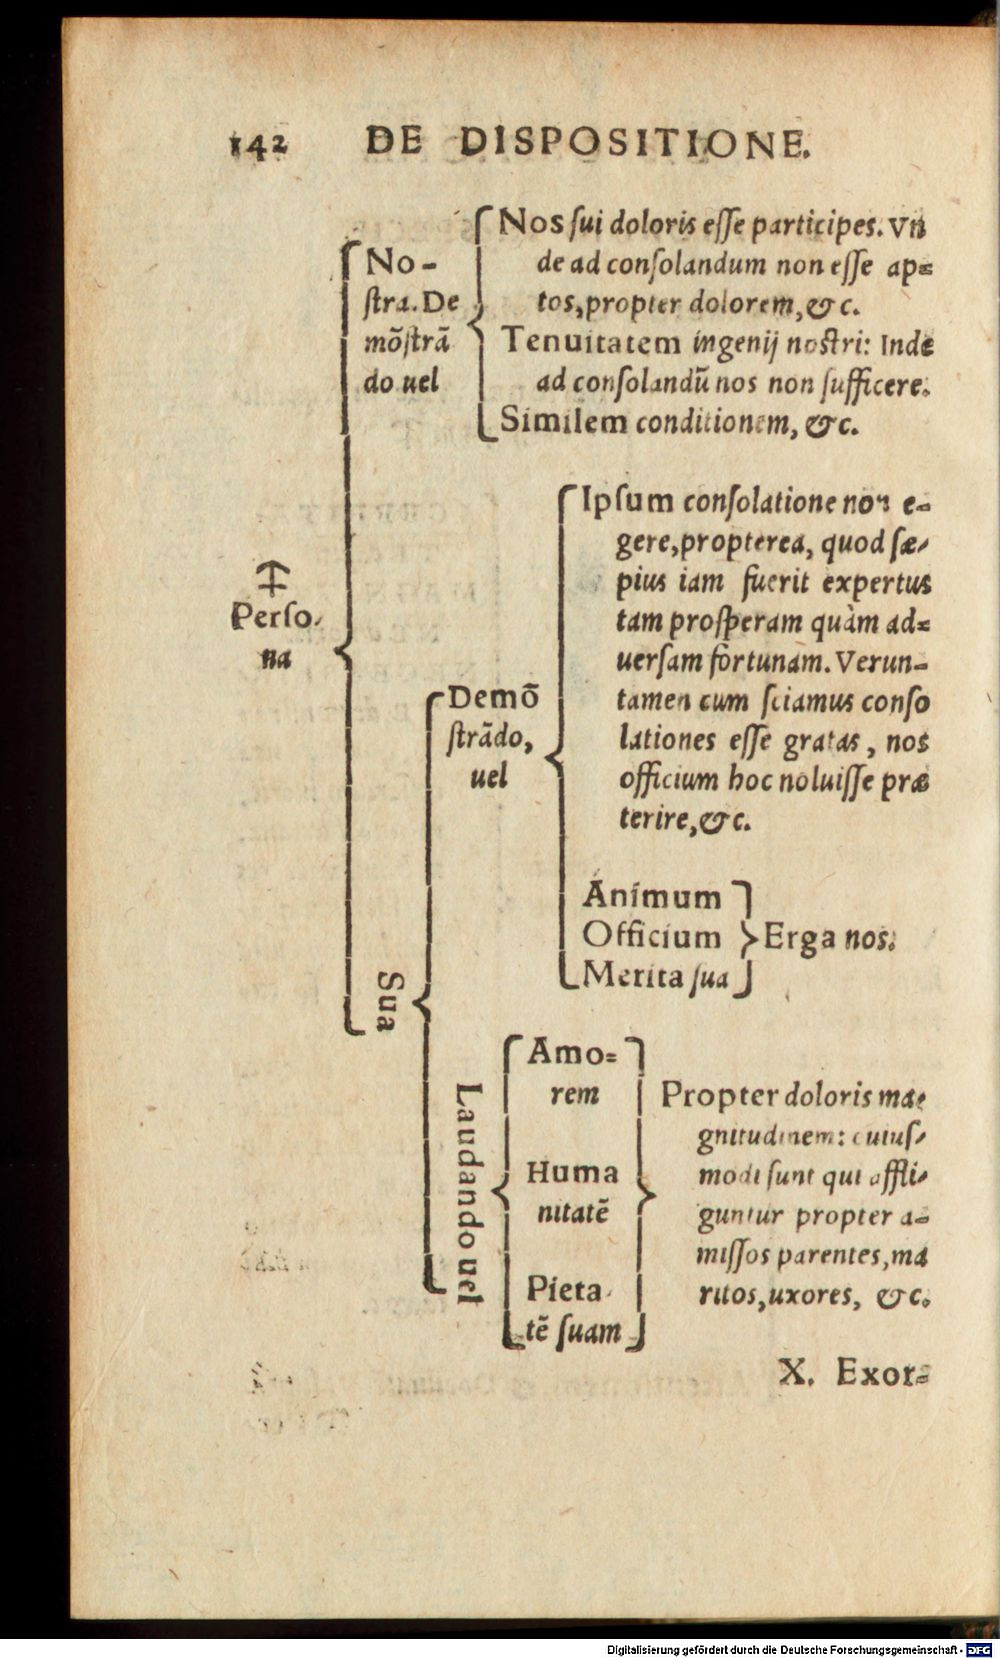 142 DE DISPOSITIONE.
No-
ſtra. De
mõſtrã
do uel
Nos ſui doloris eſſe participes. Vn
de ad conſolandum non eſſe ap=
tos, propter dolorem, &c.
Tenuitatem ingenij noſtri: Inde
ad conſolandũ nos non ſufficere.
Similem conditionem, &c.
Perſo-
na
Sua
Demõ
ſtrãdo,
uel
Ipſum conſolatione non e-
gere, propterea, quod ſæ-
pius iam fuerit expertus
tam proſperam quàm ad=
uerſam fortunam. Verun-
tamen cum ſciamus conſo
lationes eſſe gratas, nos
officium hoc noluiſſe præ
terire, &c.
Animum
Officium
Merita ſua
Erga nos.
Laudando uel
Amo=
rem
Huma
nitatẽ
Pieta-
tẽ ſuam
Propter doloris ma-
gnitudinem: cuiuſ-
modi ſunt qui affli-
guntur propter a-
miſſos parentes, ma
ritos, uxores, &c.
X. Exor=
Digitalisierung gefördert durch die Deutsche Forschungsgemeinschaft - DFG